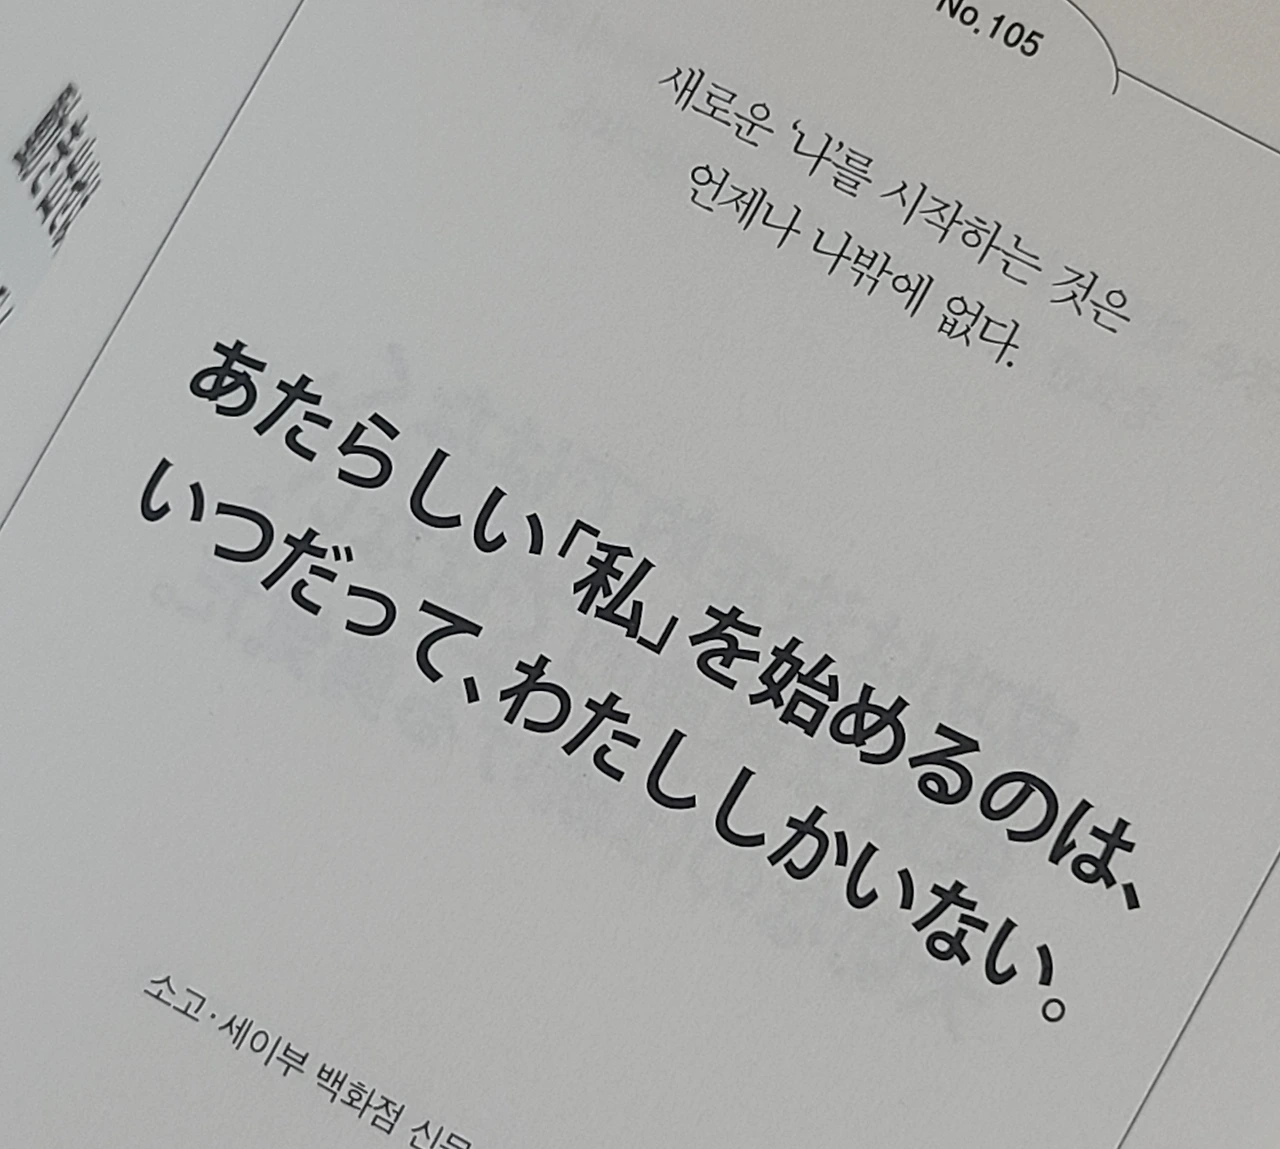 No.105
새로운 ‘나’를 시작하는 것은
언제나 나밖에 없다.
あたらしい「私」を始めるのは、
いつだって、わたししかいない。
소고·세이부 백화점